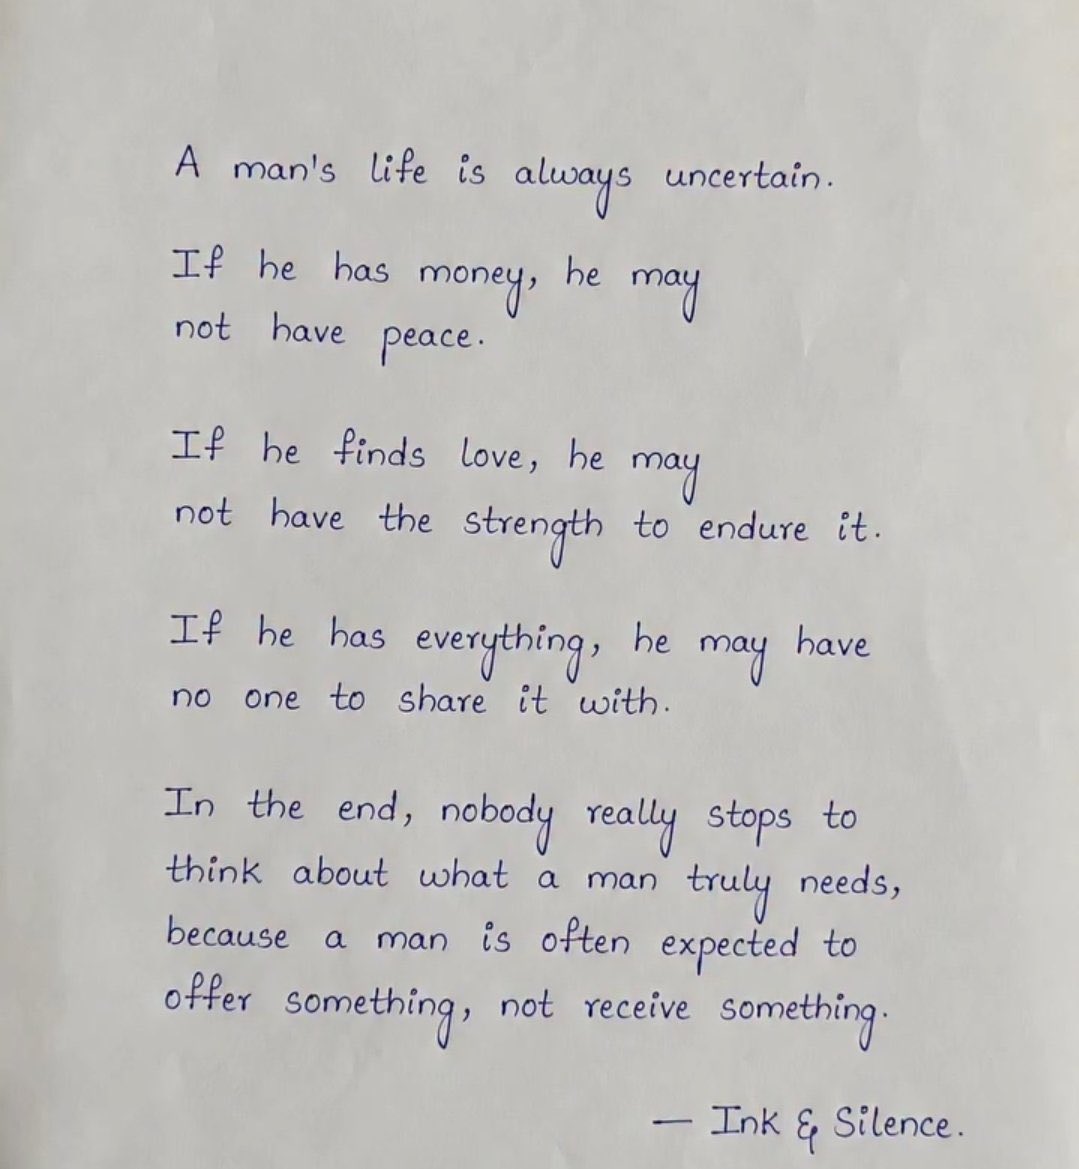 A man's life is always uncertain.
If he has money, he may
not have peace.
If he finds love, he may
not have the strength to endure it.
If he has everything, he may have
no one to share it with.
In the end, nobody really stops to
think about what a man truly needs,
because a man is often expected to
offer something, not receive something.
— Ink & Silence.